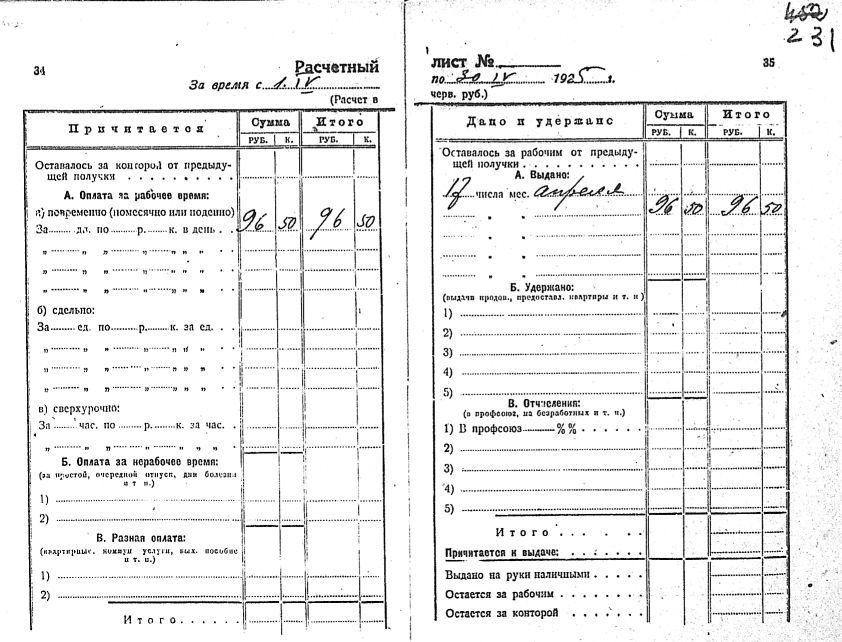 452
231
34
Расчетный
За время с 1. IV
(Расчет в
Причитается
Сумма
Итого
РУБ. К. РУБ. К.
Оставалось за конторой от предыду-
щей получки . . . . . . . . . .
А. Оплата за рабочее время:
а) повременно (помесячно или поденно)
За........дн. по........р........к. в день . .
96 50 96 50
„ ........ „ „ ........ „ ........ „ „ „ . .
„ ........ „ „ ........ „ ........ „ „ „ . .
„ ........ „ „ ........ „ ........ „ „ „ . .
б) сдельно:
За........ед. по........р........к. за ед. . .
„ ........ „ „ ........ „ ........ „ „ „ . .
„ ........ „ „ ........ „ ........ „ „ „ . .
„ ........ „ „ ........ „ ........ „ „ „ . .
в) сверхурочно:
За........час. по........р........к. за час. .
„ ........ „ „ ........ „ ........ „ „ „ .
Б. Оплата за нерабочее время:
(за простой, очередной отпуск, дни болезни
и т п.)
1)
2)
В. Разная оплата:
(квартирные, коммун услуги, вых. пособие
и т. п.)
1)
2)
Итого . . . . .
лист №
35
по 30 IV 1925 г.
черв. руб.)
Дано и удержано
Сумма
Итого
РУБ. К. РУБ. К.
Оставалось за рабочим от предыду-
щей получки . . . . . . . . . .
А. Выдано:
17 числа мес. апреля
96 50 96 50
„ „
„ „
„ „
„ „
Б. Удержано:
(выдачи продов., предоставл. квартиры и т. п)
1)
2)
3)
4)
5)
В. Отчисления:
(в профсоюз, на безработных и т. п.)
1) В профсоюз........%% . . . . . .
2)
3)
4)
5)
Итого . . . . .
Причитается к выдаче: . . . . . .
Выдано на руки наличными . . . . .
Остается за рабочим . . . . . . .
Остается за конторой . . . . . .